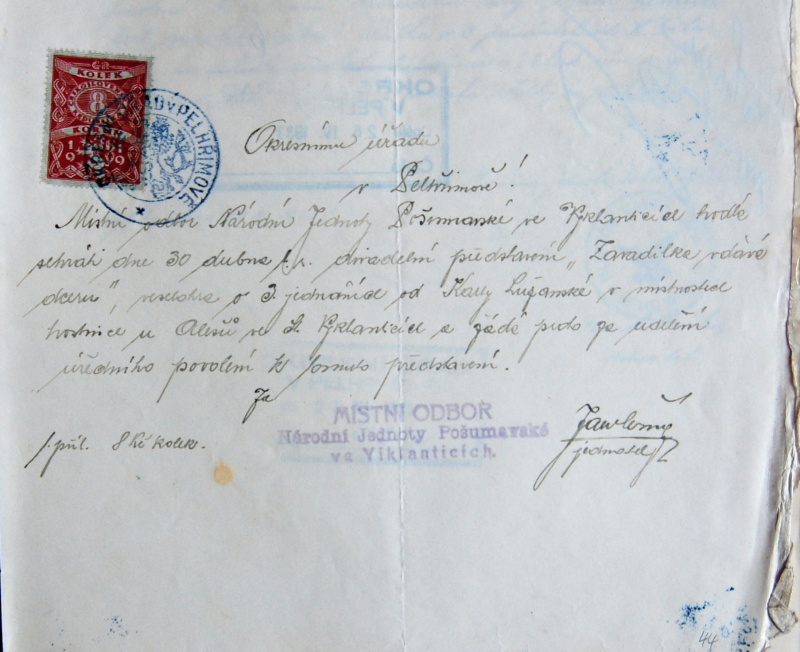 KOLEK
8
KOLEK
1919
V PELHŘIMOVĚ
Okresnímu úřadu
v Pelhřimově!
Místní odbor Národní Jednoty Pošumavské ve Vyklanticích hodlá
sehráti dne 30 dubna t.r. divadelní představení „Zavadilka vdává
dceru", veselohra o 3 jednáních od Karly Lužanské v místnostech
hostince u Alešů ve St. Vyklanticích a žádá proto za udělení
úředního povolení k tomuto představení.
Za
MÍSTNÍ ODBOR
Národní Jednoty Pošumavské
ve Viklanticích.
1 příl. 8 Kč kolek.
jednatel
44